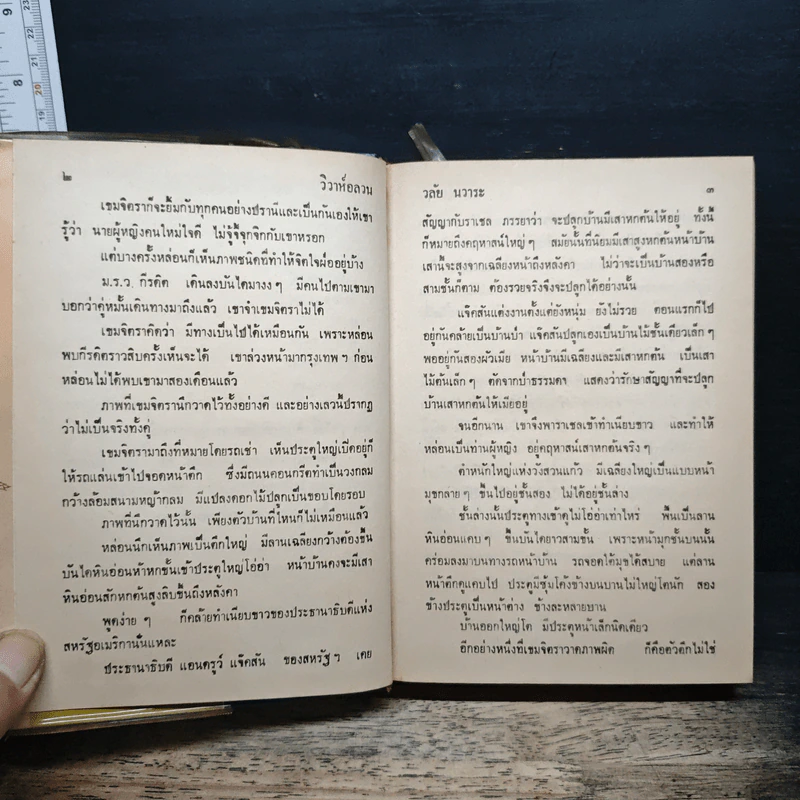 9
8
23
22
21
20
19
18
๒
วิวาห์อลวน
เขมจิตราก็จะยิ้มกับทุกคนอย่างปรานีและเป็นกันเองให้เขา
รู้ว่า นายผู้หญิงคนใหม่ใจดี ไม่จู้จี้จุกจิกกับเขาหรอก
แต่บางครั้งหล่อนก็เห็นภาพชนิดที่ทำให้จิตใจฝ่ออยู่บ้าง
ม.ร.ว. กีรติ เดินลงบันไดมางง ๆ มีคนไปตามเขามา
บอกว่าคู่หมั้นเดินทางมาถึงแล้ว เขาจำเขมจิตราไม่ได้
เขมจิตราคิดว่า มีทางเป็นไปได้เหมือนกัน เพราะหล่อน
พบกีรติราวสิบครั้งเห็นจะได้ เขาล่วงหน้ามากรุงเทพ ฯ ก่อน
หล่อนไม่ได้พบเขามาสองเดือนแล้ว
ภาพที่เขมจิตรานึกวาดไว้ทั้งอย่างดี และอย่างเลวนี้ปรากฏ
ว่าไม่เป็นจริงทั้งคู่
เขมจิตรามาถึงที่หมายโดยรถเช่า เห็นประตูใหญ่เปิดอยู่ก็
ให้รถแล่นเข้าไปจอดหน้าตึก ซึ่งมีถนนคอนกรีตทำเป็นวงกลม
กว้างล้อมสนามหญ้ากลม มีแปลงดอกไม้ปลูกเป็นขอบโดยรอบ
ภาพที่นึกวาดไว้นั้น เพียงตัวบ้านที่ไหนก็ไม่เหมือนแล้ว
หล่อนนึกเห็นภาพเป็นตึกใหญ่ มีลานเฉลียงกว้างต้องขึ้น
บันไดหินอ่อนห้าหกชั้นเข้าประตูใหญ่โอ่อ่า หน้าบ้านคงจะมีเสา
หินอ่อนสักหกต้นสูงลิบขึ้นถึงหลังคา
พูดง่าย ๆ ก็คล้ายทำเนียบขาวของประธานาธิบดีแห่ง
สหรัฐอเมริกานั่นแหละ
ประธานาธิบดี แอนดรูว์ แจ๊คสัน ของสหรัฐ ฯ เคย
วลัย นวาระ
๓
สัญญากับราเชล ภรรยาว่า จะปลูกบ้านมีเสาหกต้นให้อยู่ ทั้งนี้
ก็หมายถึงคฤหาสน์ใหญ่ ๆ สมัยนั้นที่นิยมมีเสาสูงหกต้นหน้าบ้าน
เสานี้จะสูงจากเฉลียงหน้าถึงหลังคา ไม่ว่าจะเป็นบ้านสองหรือ
สามชั้นก็ตาม ต้องรวยจริงจึงจะปลูกได้อย่างนั้น
แจ๊คสันแต่งงานตั้งแต่ยังหนุ่ม ยังไม่รวย ตอนแรกก็ไป
อยู่กันคล้ายเป็นบ้านป่า แจ๊คสันปลูกเองเป็นบ้านไม้ชั้นเดียวเล็ก ๆ
พออยู่กันสองผัวเมีย หน้าบ้านมีเฉลียงและมีเสาหกต้น เป็นเสา
ไม้ต้นเล็ก ๆ ตัดจากป่าธรรมดา แสดงว่ารักษาสัญญาที่จะปลูก
บ้านเสาหกต้นให้เมียอยู่
จนอีกนาน เขาจึงพาราเชลเข้าทำเนียบขาว และทำให้
หล่อนเป็นท่านผู้หญิง อยู่คฤหาสน์เสาหกต้นจริง ๆ
ตำหนักใหญ่แห่งวังสวนแก้ว มีเฉลียงใหญ่เป็นแบบหน้า
มุขกลาย ๆ ขึ้นไปอยู่ชั้นสอง ไม่ได้อยู่ชั้นล่าง
ชั้นล่างนั้นประตูทางเข้าดูไม่โอ่อ่าเท่าไหร่ พื้นเป็นลาน
หินอ่อนแคบ ๆ ขึ้นบันไดยาวสามขั้น เพราะหน้ามุขชั้นบนนั้น
คร่อมลงมาบนทางรถหน้าบ้าน รถจอดใต้มุขได้สบาย แต่ลาน
หน้าตึกดูแคบไป ประตูมีซุ้มโค้งข้างบนบานไม่ใหญ่โตนัก สอง
ข้างประตูเป็นหน้าต่าง ข้างละหลายบาน
บ้านออกใหญ่โต มีประตูหน้าเล็กนิดเดียว
อีกอย่างหนึ่งที่เขมจิตราวาดภาพผิด ก็คือตัวตึกไม่ใช่